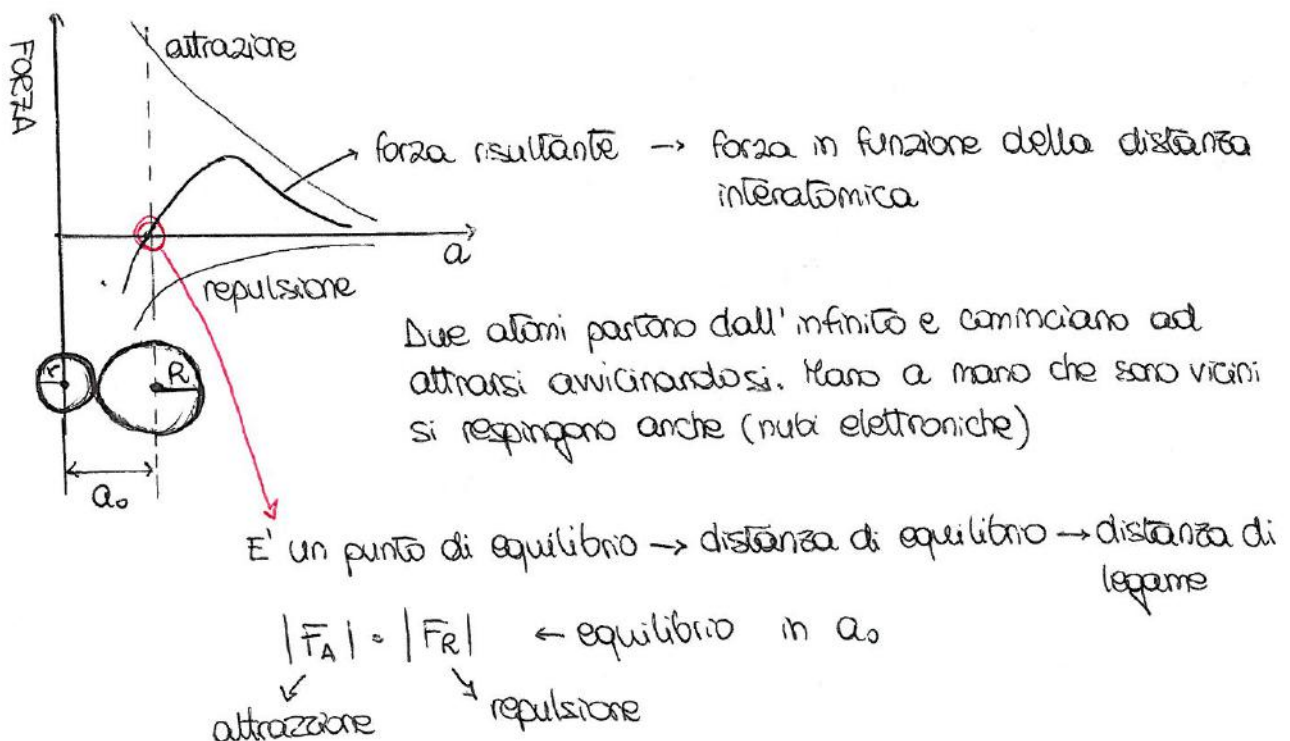 FORZA
attrazione
forza risultante → forza in funzione della distanza
interatomica
a
repulsione
Due atomi partono dall'infinito e cominciano ad
attrarsi avvicinandosi. Mano a mano che sono vicini
si respingono anche (nubi elettroniche)
r
R
a₀
E' un punto di equilibrio → distanza di equilibrio → distanza di
legame
|F_A| = |F_R| ← equilibrio in a₀
attrazzione
repulsione